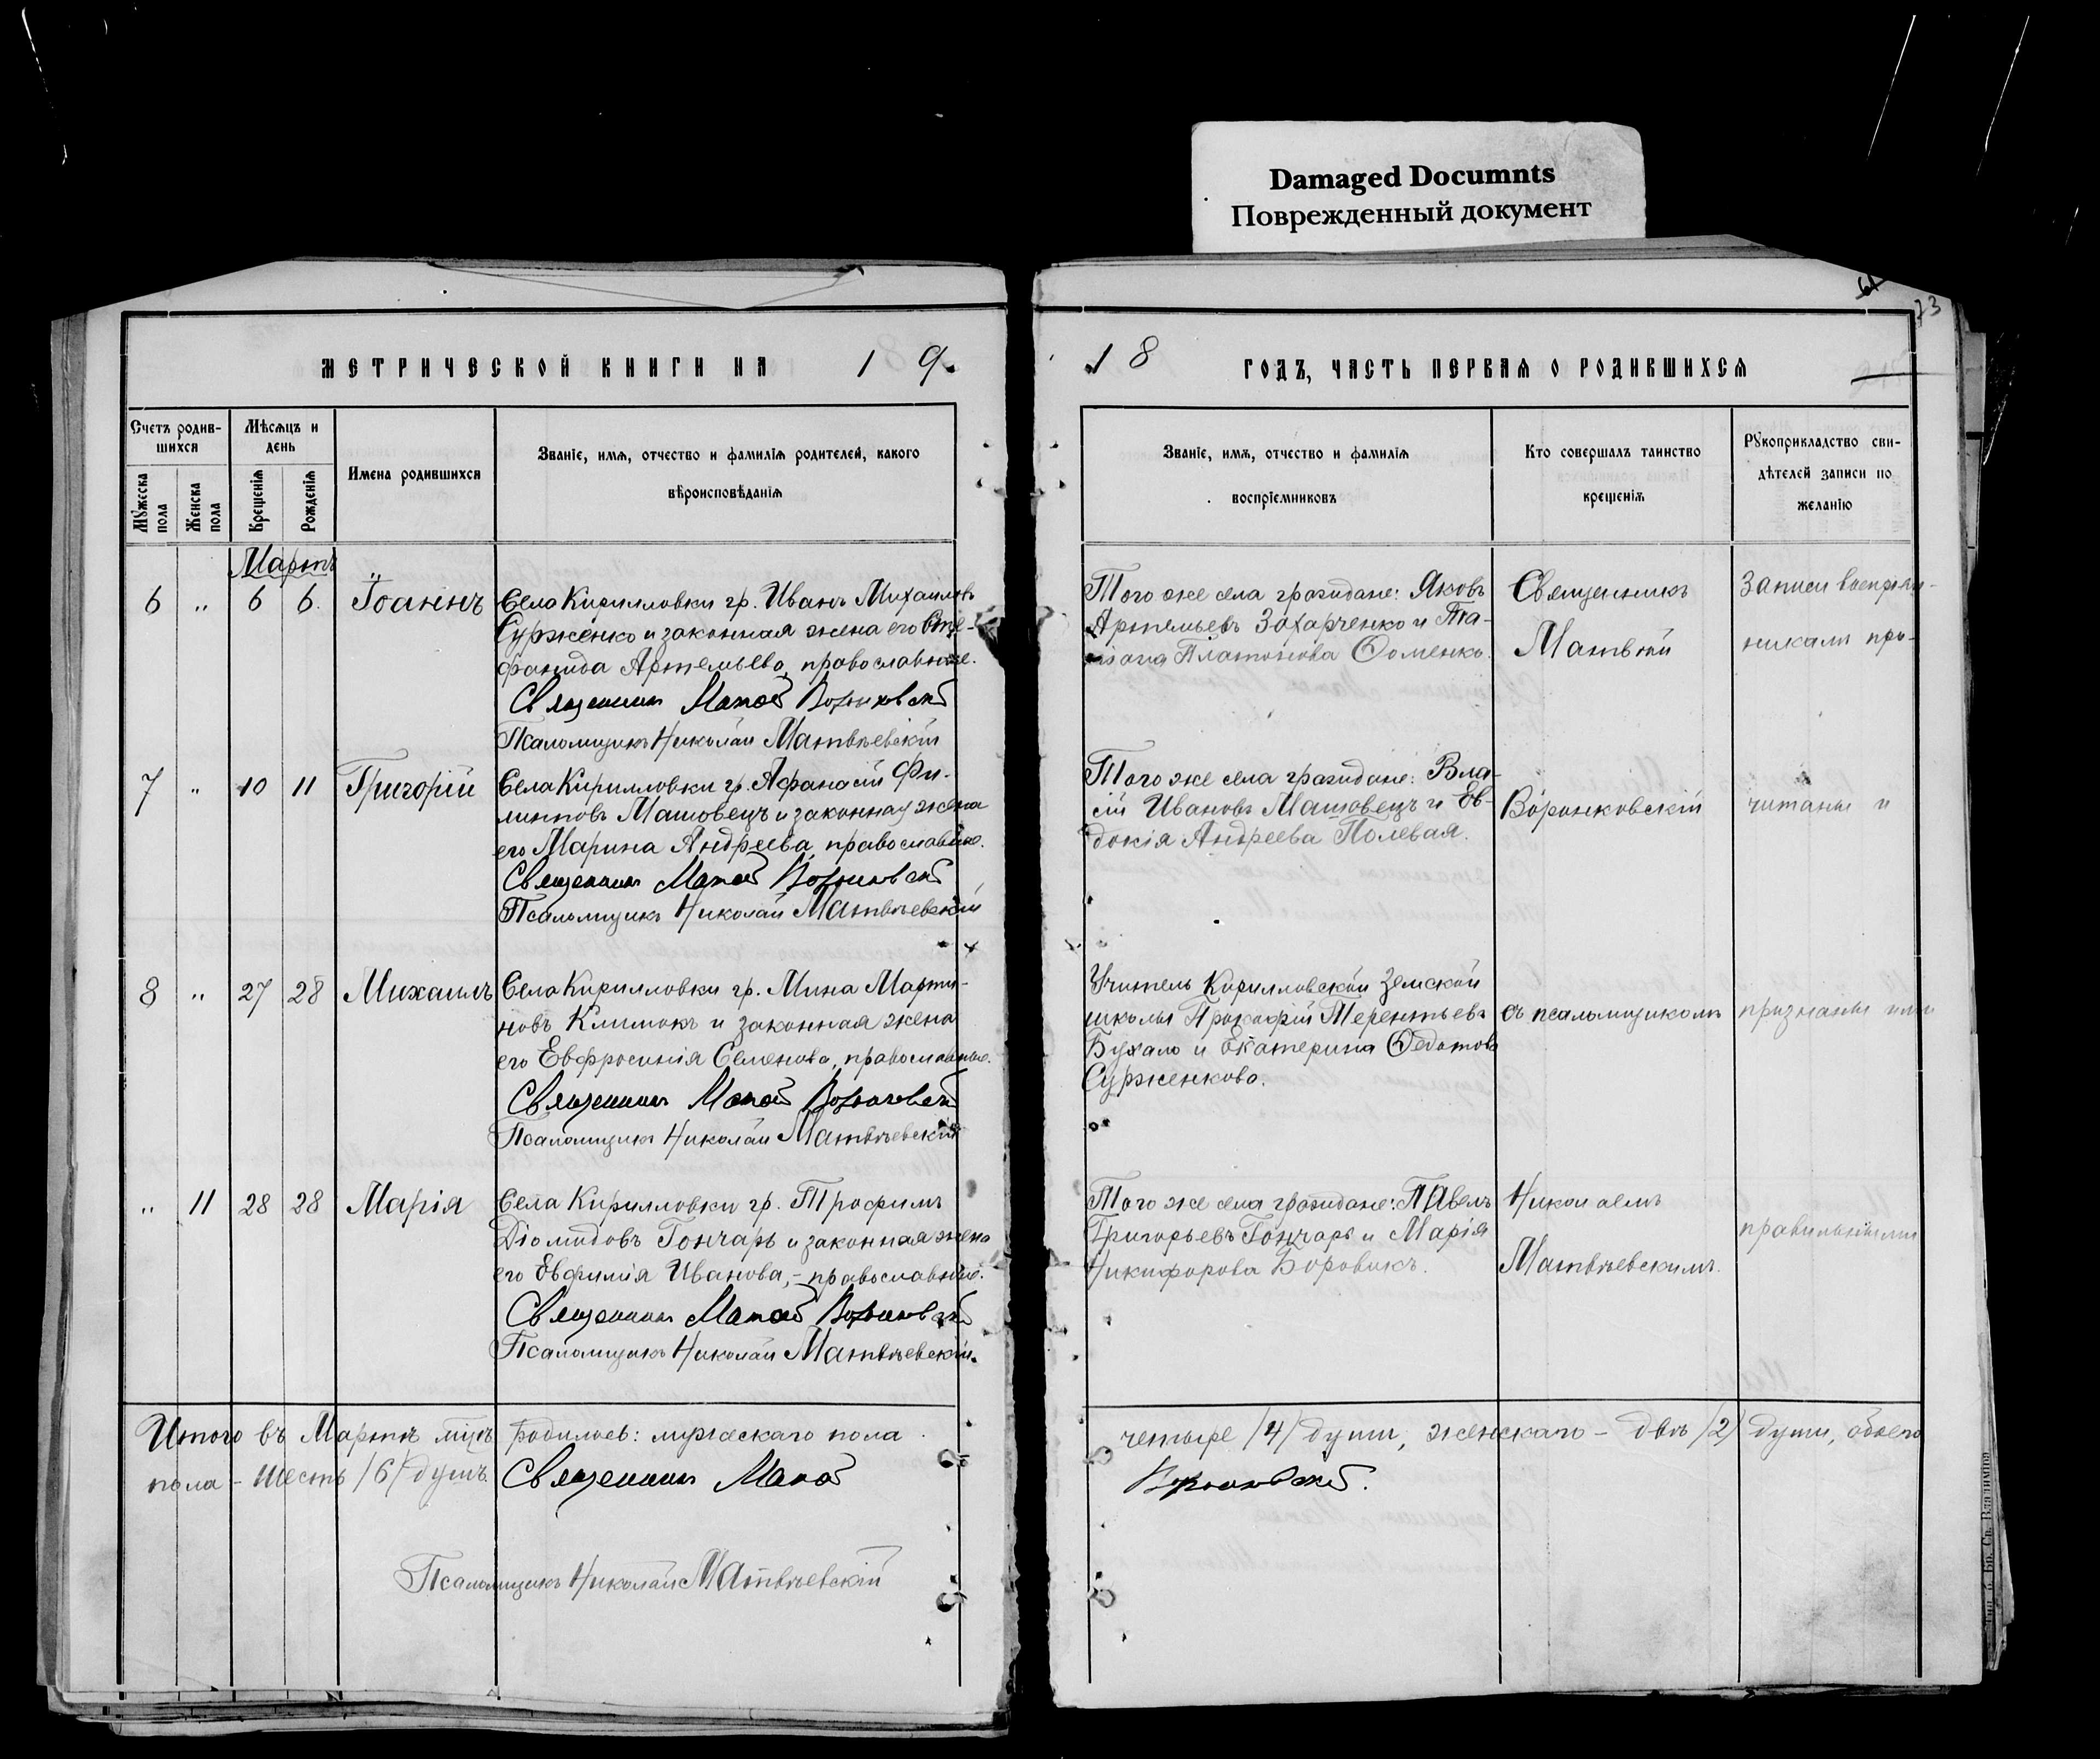 Damaged Documnts
Поврежденный документ
73
МЕТРИЧЕСКОЙ КНИГИ НА 19
18 ГОДЪ, ЧАСТЬ ПЕРВАЯ О РОДИВШИХСЯ
Счетъ родив-
шихся
Мѣсяцъ и
день
Мужеска пола
Женска пола
Крещенія
Рожденія
Имена родившихся
Званіе, имя, отчество и фамилія родителей, какого
вѣроисповѣданія
Званіе, имя, отчество и фамилія
воспріемниковъ
Кто совершалъ таинство
крещенія
Рукоприкладство сви-
дѣтелей записи по
желанію
Мартъ
6 " 6 6 Іоаннъ
Села Кирилловки гр. Иванъ Михаиловъ
Сурженко и законная жена его Сте-
фанида Артемьева, православные.
Священникъ Матвей Воронковскій
Псаломщикъ Николай Матвѣевскій
Того же села граждане: Яковъ
Артемьевъ Захарченко и Та-
тіана Платонова Фоменко.
Священникъ
Матвей
Записи воспріем-
никамъ про-
7 " 10 11 Григорій
Села Кирилловки гр. Афанасій Фи-
липповъ Машовецъ и законная жена
его Марина Андреева, православные.
Священникъ Матвей Воронковскій
Псаломщикъ Николай Матвѣевскій
Того же села граждане: Вла-
сій Ивановъ Машовецъ и Ев-
докія Андреева Полевая.
Воронковскій
читаны и
8 " 27 28 Михаилъ
Села Кирилловки гр. Мина Марти-
новъ Климокъ и законная жена
его Евфросинія Семенова, православные.
Священникъ Матвей Воронковскій
Псаломщикъ Николай Матвѣевскій
Учитель Кирилловской Земской
школы Прокофій Терентьевъ
Бухало и Екатерина Федотова
Сурженкова.
съ псаломщикомъ
признаны ими
" 11 28 28 Марія
Села Кирилловки гр. Трофимъ
Діомидовъ Гончаръ и законная жена
его Евфимія Иванова, - православные.
Священникъ Матвей Воронковскій
Псаломщикъ Николай Матвѣевскій.
Того же села граждане: Павелъ
Григорьевъ Гончаръ и Марія
Никифорова Боровикъ.
Николаемъ
Матвѣевскимъ.
правильными
Итого въ Мартѣ м-цѣ родилось: мужескаго пола
четыре /4/ души, женскаго - двѣ /2/ души, обоего
пола - шесть /6/ душъ. Священникъ Матвей
Воронковскій.
Псаломщикъ Николай Матвѣевскій